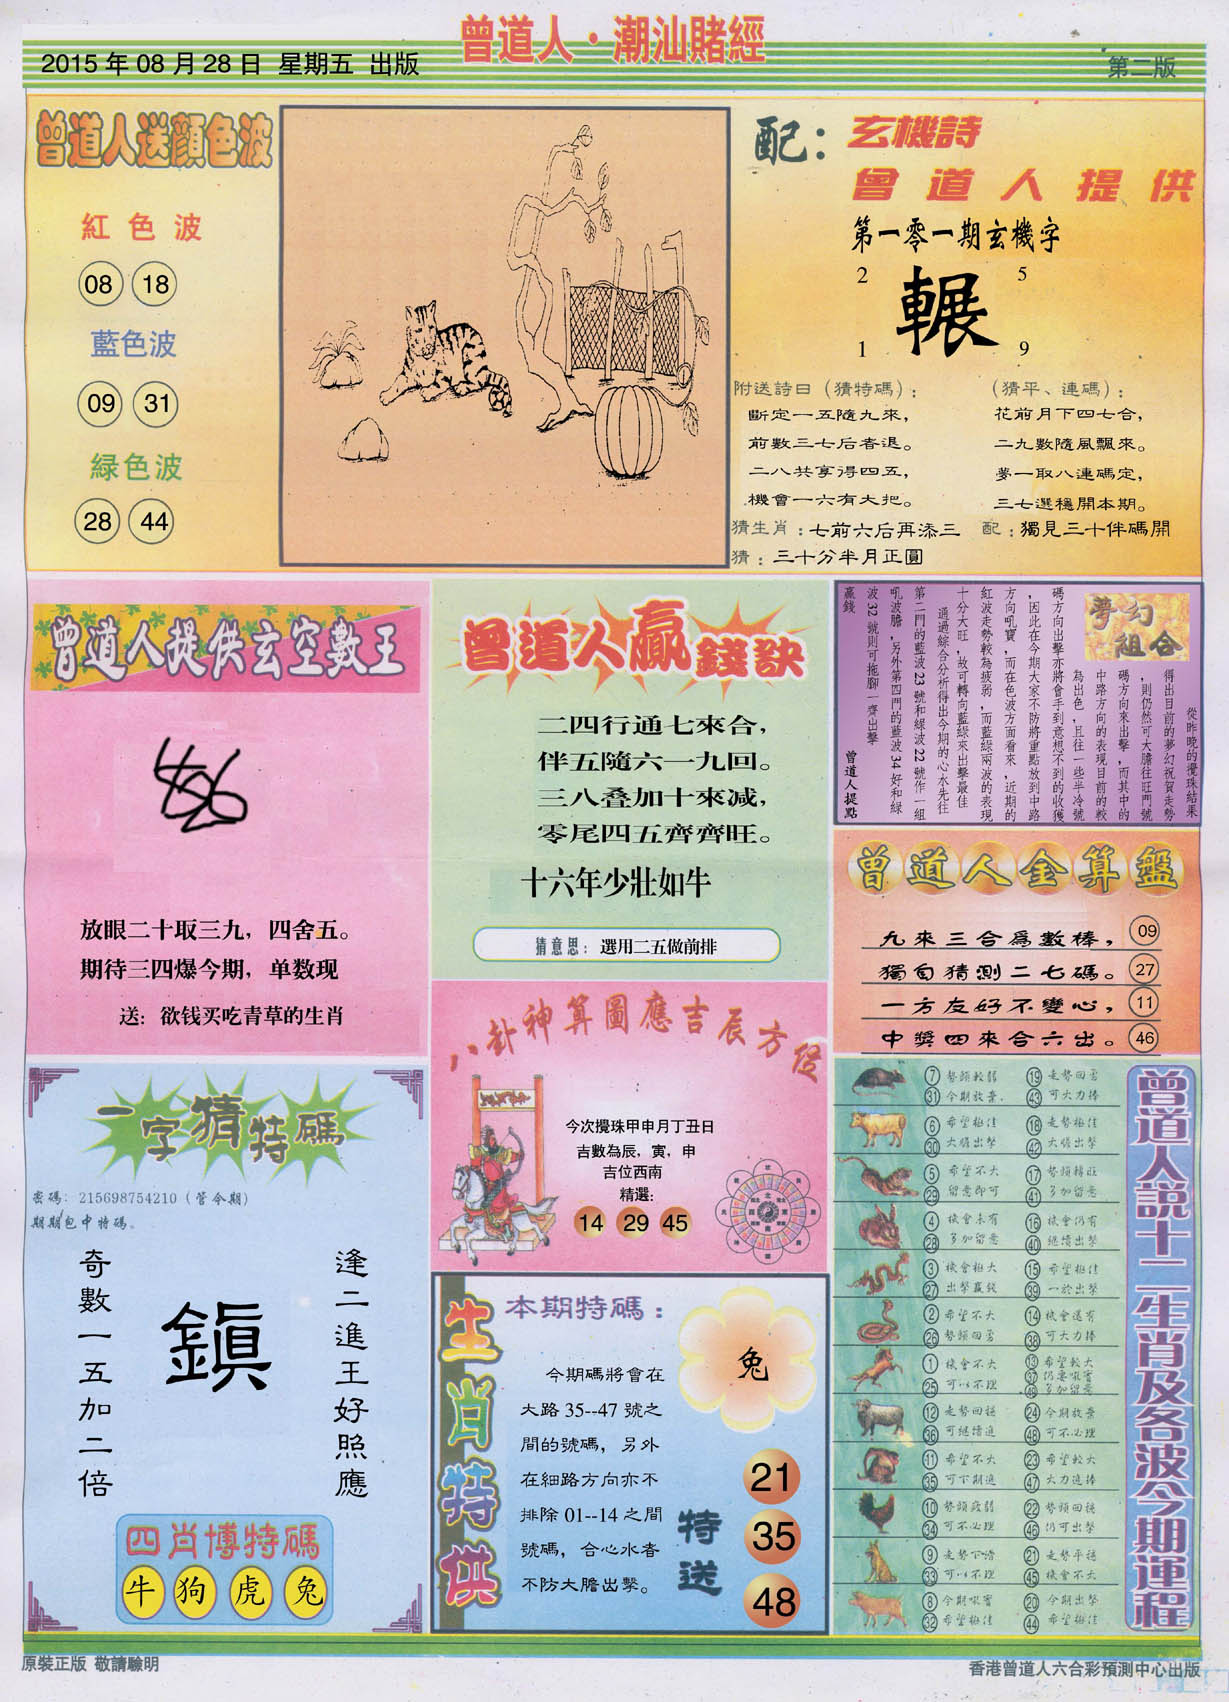 曾道人·潮汕賭經
2015年08月28日 星期五 出版
第二版
曾道人送顏色波
紅色波
08 18
藍色波
09 31
緑色波
28 44
配：玄機詩
曾道人提供
第一零一期玄機字
2 5
輾
1 9
附送詩曰（猜特碼）：
斷定一五隨九來，
前數三七后者退。
二八共享得四五，
機會一六有大把。
（猜平、連碼）：
花前月下四七合，
二九數隨風飄來。
夢一取八連碼定，
三七選穩開本期。
猜生肖：七前六后再添三
配：獨見三十伴碼開
猜：三十分半月正圓
曾道人提供玄空數王
放眼二十取三九，四舍五。
期待三四爆今期，单数现
送：欲钱买吃青草的生肖
曾道人贏錢訣
二四行通七來合，
伴五隨六一九回。
三八叠加十來減，
零尾四五齊齊旺。
十六年少壯如牛
猜意思：選用二五做前排
夢幻組合
從昨晚的攪珠結果
得出目前的夢幻祝賀走勢
，則仍然可大膽往旺門號
碼方向來出擊，而其中的
中路方向的表現目前的較
為出色，且往一些半冷號
碼方向出擊亦將會手到意想不到的收獲
，因此在今期大家不防將重點放到中路
方向吼寶，而在色波方面看來，近期的
紅波走勢較為疲弱，而藍綠兩波的表現
十分大旺，故可轉向藍綠來出擊最佳
通過綜合分析得出今期的心水先往
第二門的藍波23號和綠波22號作一組
吼波膽，另外第四門的藍波34好和綠
波32號則可拖腳一齊出擊
贏錢
曾道人提點
曾道人金算盤
九來三合爲數棒， 09
獨自猜測二七碼。 27
一方友好不變心， 11
中獎四來合六出。 46
一字猜特碼
密碼：215698754210（管令期）
期期包中特碼。
逢二進王好照應
鎭
奇數一五加二倍
四肖博特碼
牛 狗 虎 兔
八卦神算圖應吉辰方位
今次攪珠甲申月丁丑日
吉數為辰，寅，申
吉位西南
精選：
14 29 45
生肖特供
本期特碼：
兔
今期碼將會在
大路35--47號之
間的號碼，另外
在細路方向亦不
排除01--14之間
號碼，合心水者
不防大膽出擊。
特送
21
35
48
曾道人説十二生肖及各波今期運程
7 勢頭較弱 19 走勢回勇
31 今期放棄 43 可大力捧
6 希望極佳 18 走勢極佳
30 大膽出擊 42 大膽出擊
5 希望不大 17 勢頭轉旺
29 留意即可 41 多加留意
4 機會未有 16 機會仍有
28 多加留意 40 繼續出擊
3 機會極大 15 希望極佳
27 出擊贏錢 39 一於出擊
2 希望不大 14 機會還有
26 勢頭回勇 38 可大力捧
1 機會不大 13 希望較大
25 可以不理 37 仍要吸實
49 多加留意
12 走勢回穩 24 今期放棄
36 可繼續追 48 可不必理
11 希望不大 23 希望較大
35 可下期追 47 大力追捧
10 勢頭疲弱 22 勢頭回穩
34 可不必理 46 仍可出擊
9 走勢下滑 21 走勢平穩
33 可以不理 45 機會不大
8 今期吸實 20 今期出擊
32 希望極佳 44 希望極佳
原裝正版 敬請驗明
香港曾道人六合彩預測中心出版